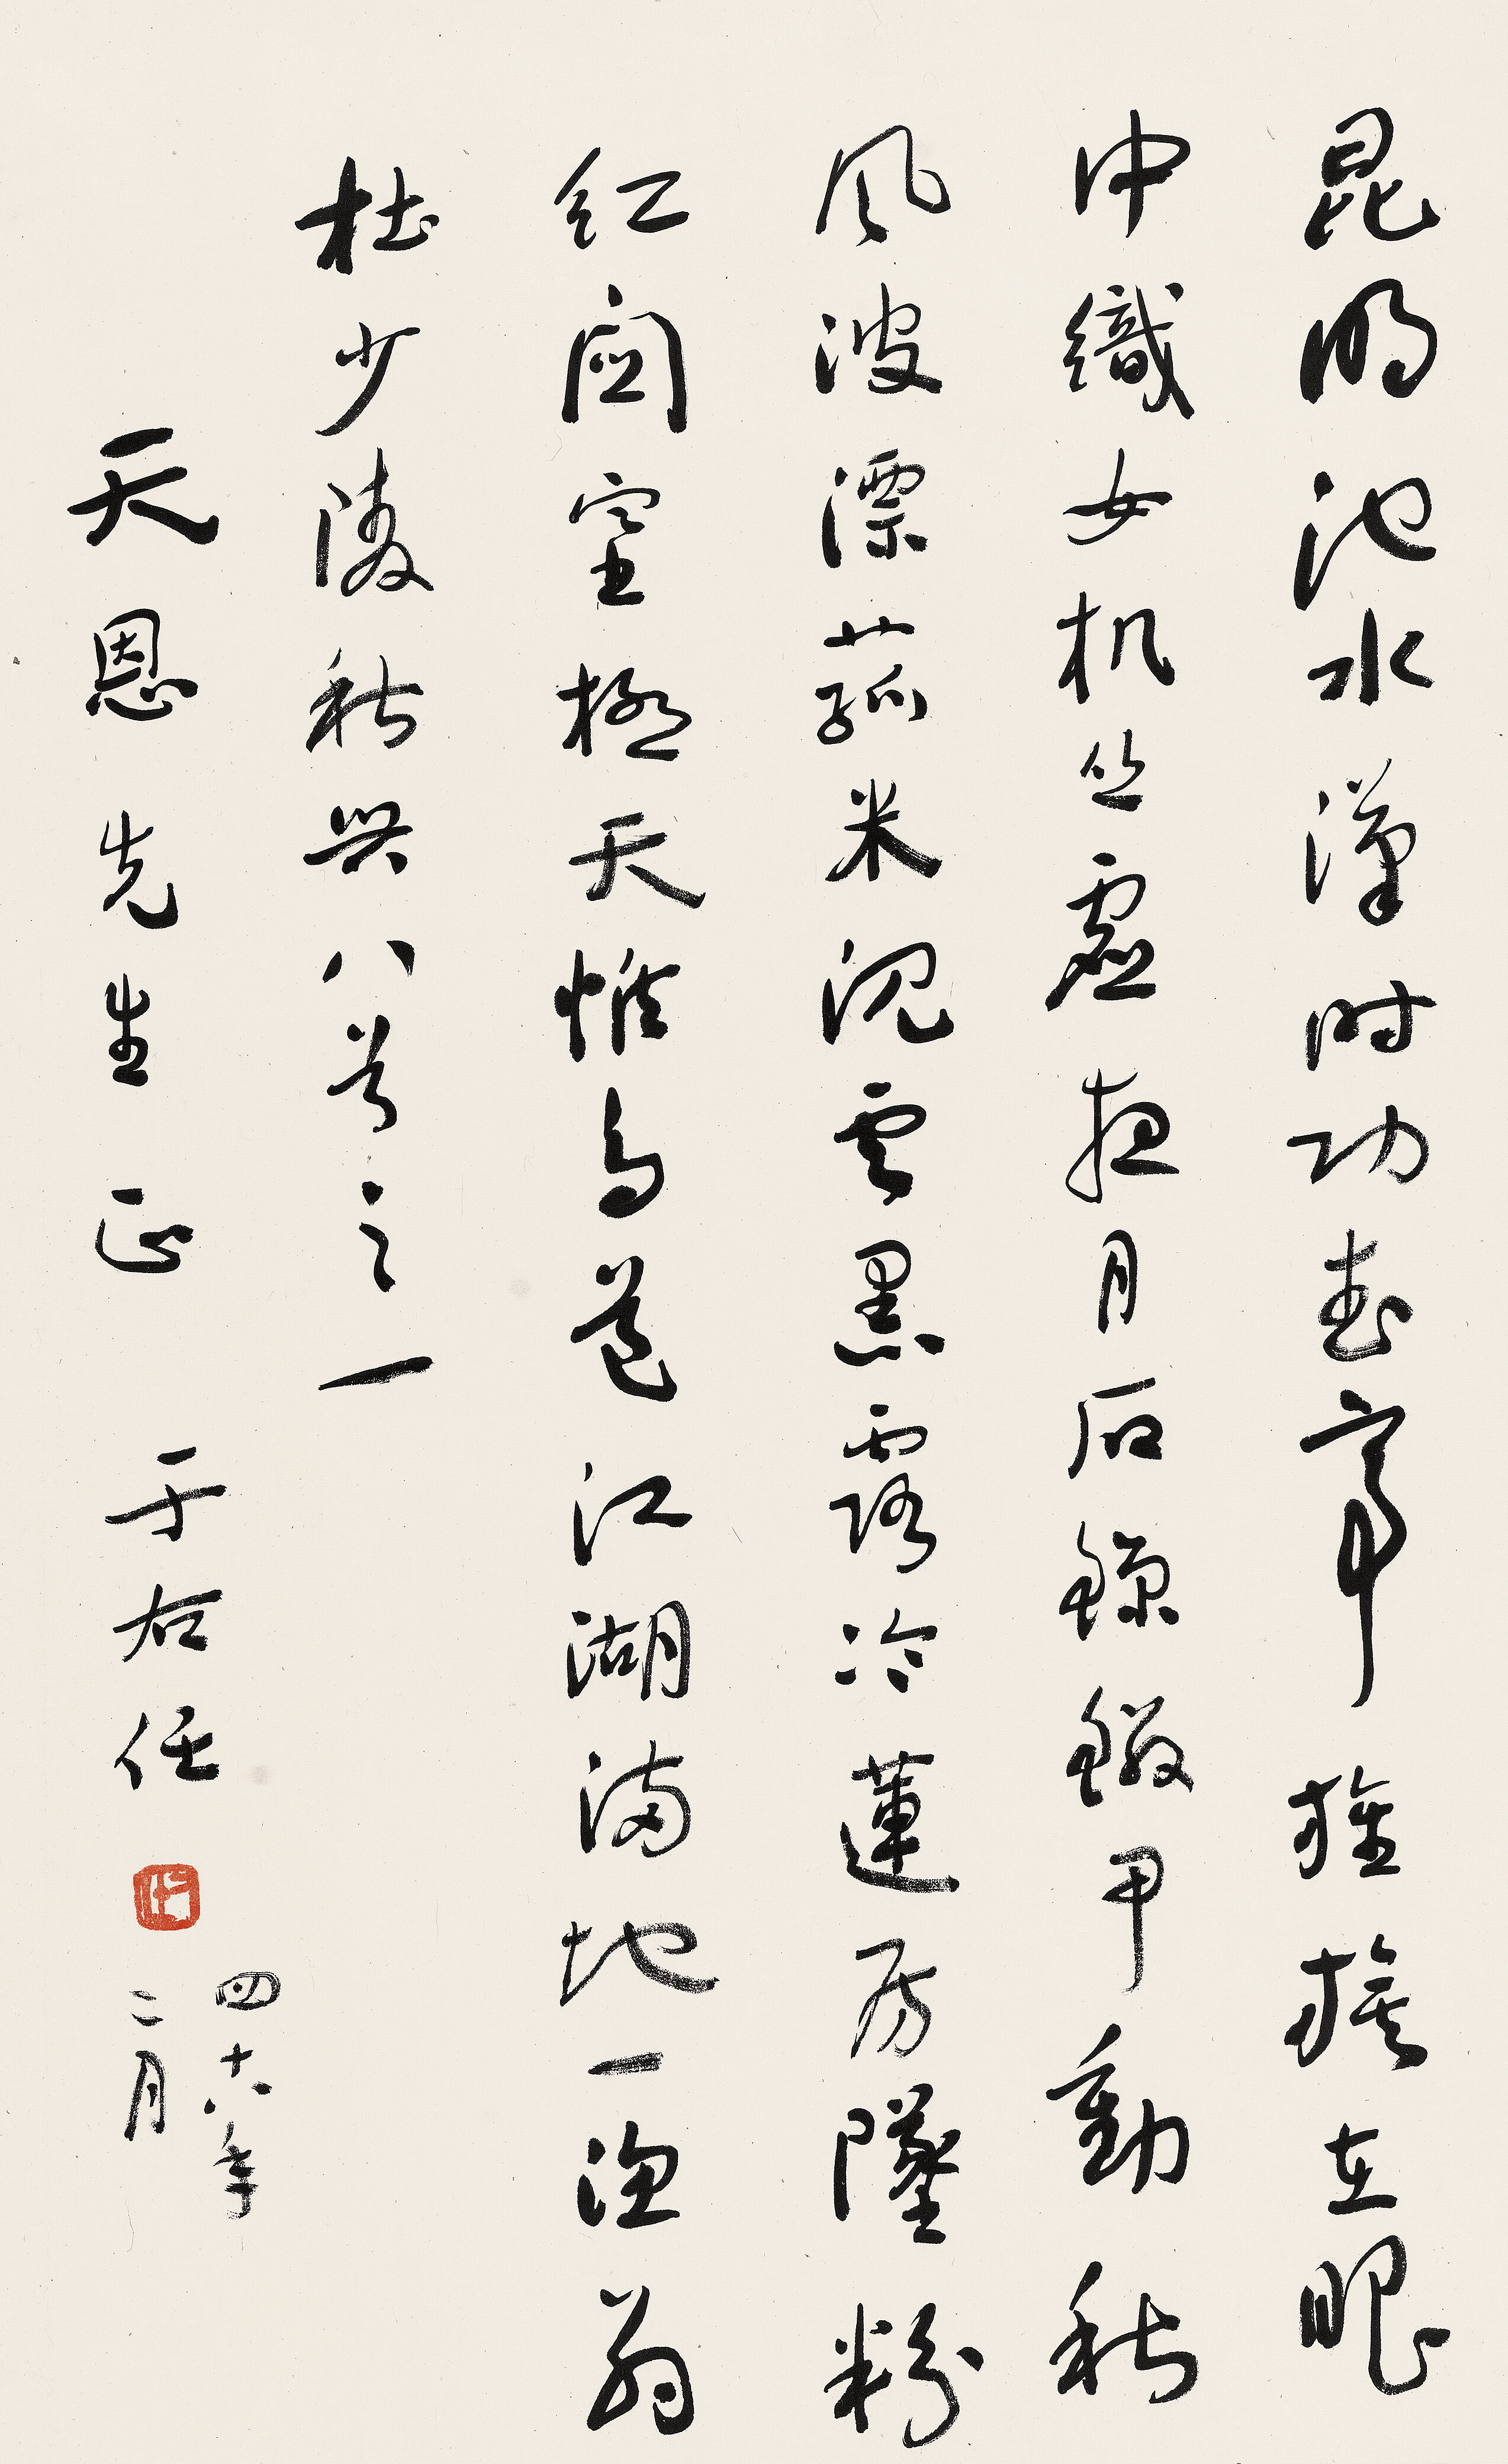 昆明池水漢時功武帝旌旗在眼
中織女机絲虛夜月石鯨鱗甲動秋
風波漂菰米沈雲黑露冷蓮房墜粉
紅關塞極天惟鳥道江湖滿地一漁翁
杜少陵秋興八首之一
天恩先生正 于右任
四十六年
二月